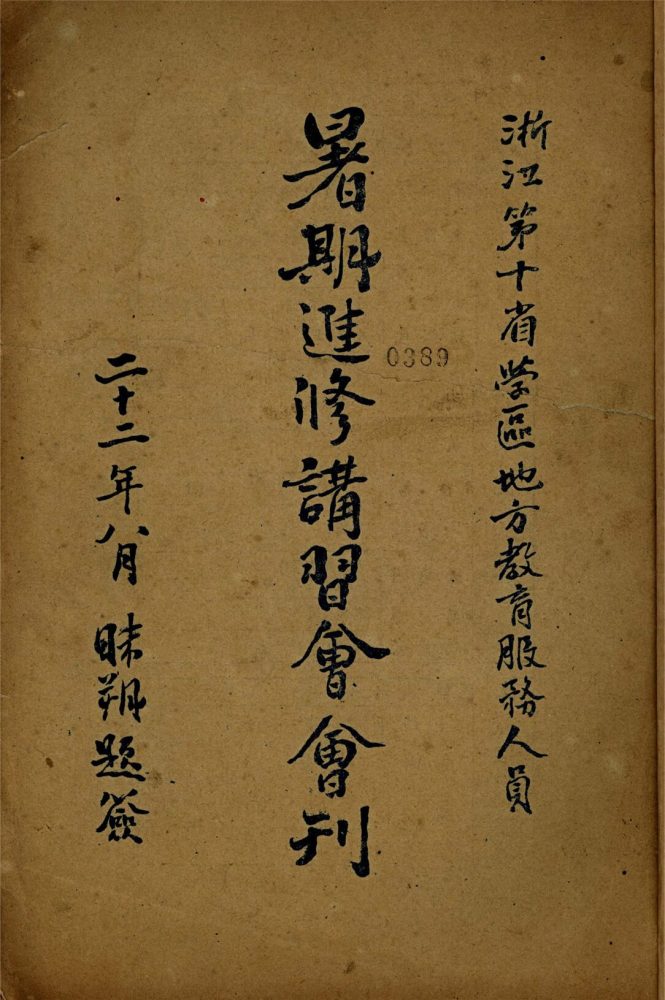 浙江第十省学區地方教育服務人員
暑期進修講習會會刊
0389
二十二年八月 昧朔題簽